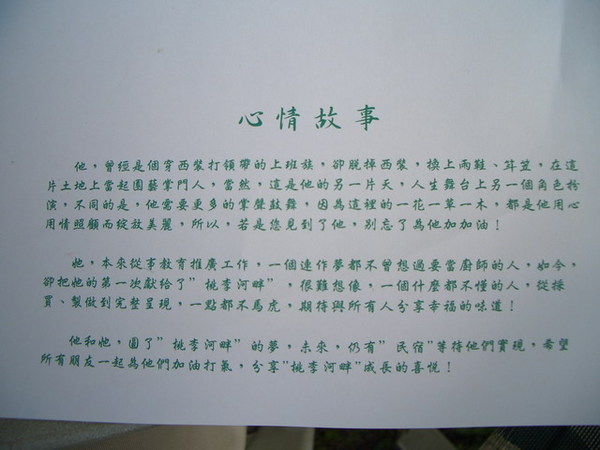 心情故事
他，曾經是個穿西裝打領帶的上班族，卻脫掉西裝，換上雨鞋、斗笠，在這
片土地上當起園藝掌門人，當然，這是他的另一片天，人生舞台上另一個角色扮
演，不同的是，他需要更多的掌聲鼓舞，因為這裡的一花一草一木，都是他用心
用情照顧而綻放美麗，所以，若是您見到了他，別忘了為他加加油！
她，本來從事教育推廣工作，一個連作夢都不曾想過要當廚師的人，如今，
卻把她的第一次獻給了”桃李河畔”，很難想像，一個什麼都不懂的人，從採
買、製做到完整呈現，一點都不馬虎，期待與所有人分享幸福的味道！
他和她，圓了”桃李河畔”的夢，未來，仍有”民宿”等待他們實現，希望
所有朋友一起為他們加油打氣，分享”桃李河畔”成長的喜悅！